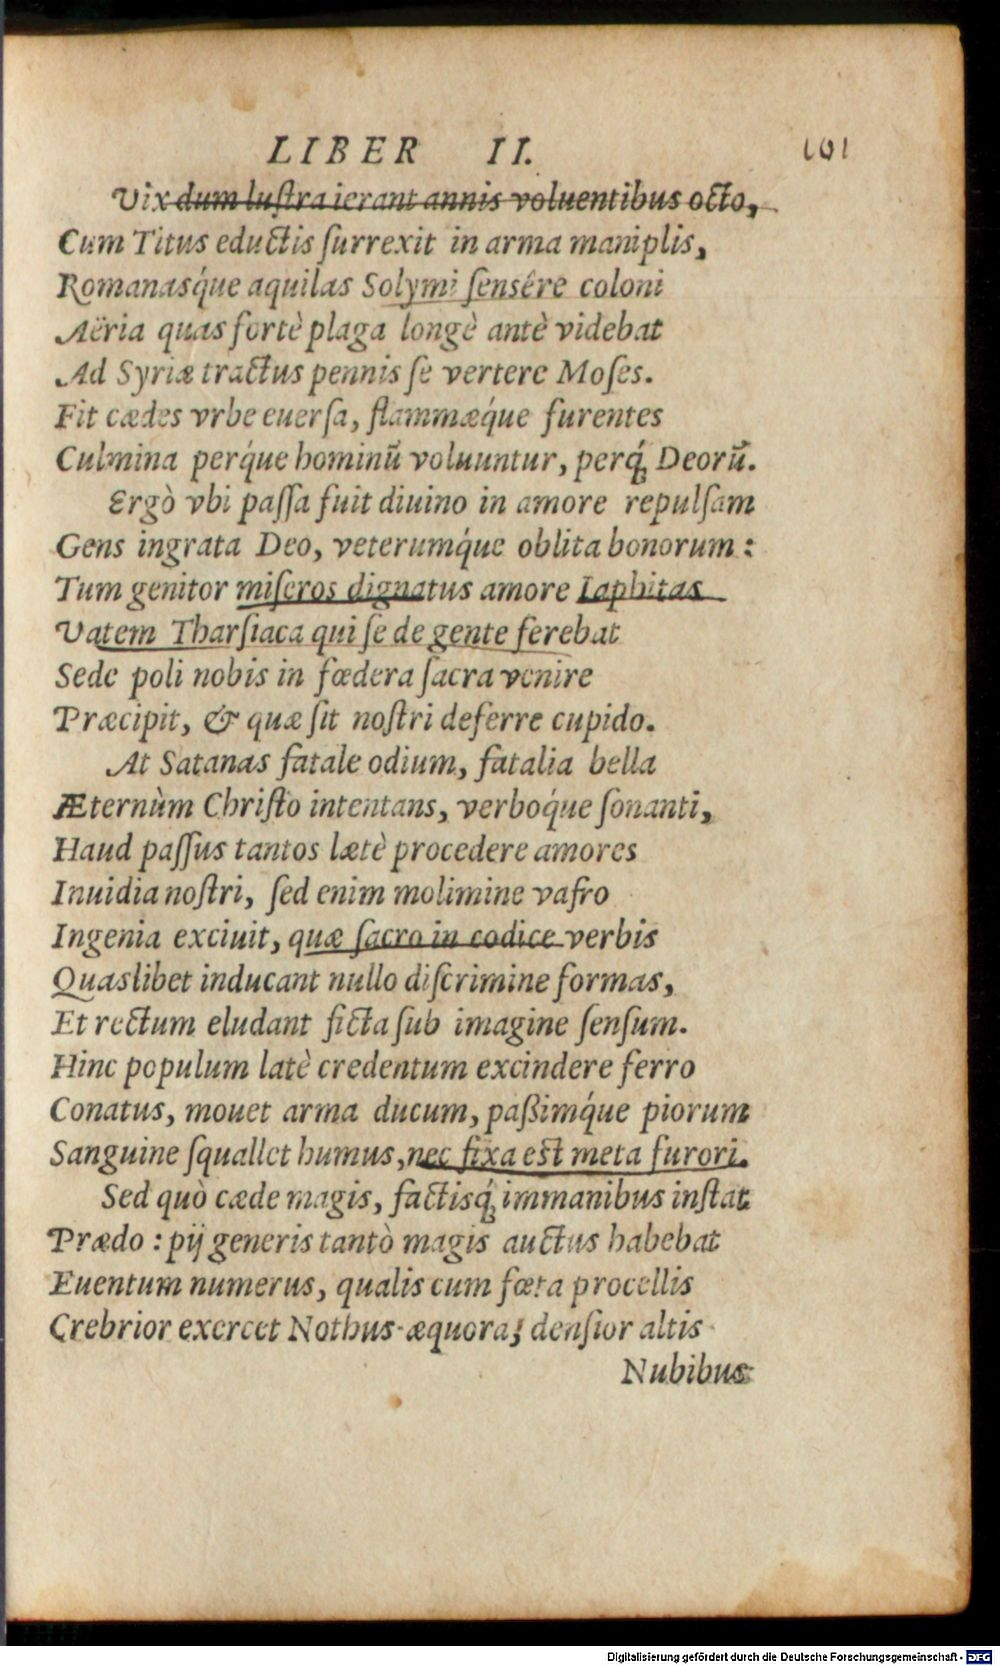 LIBER II. 101
Vix dum lustra ierant annis voluentibus octo,
Cum Titus eductis surrexit in arma maniplis,
Romanasq́ue aquilas Solymi sensêre coloni
Aëria quas fortè plaga longè antè videbat
Ad Syriæ tractus pennis se vertere Moses.
Fit cædes vrbe euersa, flammæq́ue furentes
Culmina perq́ue hominũ voluuntur, perq́; Deorũ.
Ergò vbi passa fuit diuino in amore repulsam
Gens ingrata Deo, veterumq́ue oblita bonorum:
Tum genitor miseros dignatus amore Iaphitas
Vatem Tharsiaca qui se de gente ferebat
Sede poli nobis in fœdera sacra venire
Præcipit, & quæ sit nostri deferre cupido.
At Satanas fatale odium, fatalia bella
Æternùm Christo intentans, verboq́ue sonanti,
Haud passus tantos lætè procedere amores
Inuidia nostri, sed enim molimine vafro
Ingenia exciuit, quæ sacro in codice verbis
Quaslibet inducant nullo discrimine formas,
Et rectum eludant ficta sub imagine sensum.
Hinc populum latè credentum excindere ferro
Conatus, mouet arma ducum, paßimq́ue piorum
Sanguine squallet humus, nec fixa est meta furori.
Sed quò cæde magis, factisq́; immanibus instat
Prædo: pij generis tantò magis auctus habebat
Euentum numerus, qualis cum fœta procellis
Crebrior exercet Nothus æquora; densior altis
Nubibus
Digitalisierung gefördert durch die Deutsche Forschungsgemeinschaft - DFG